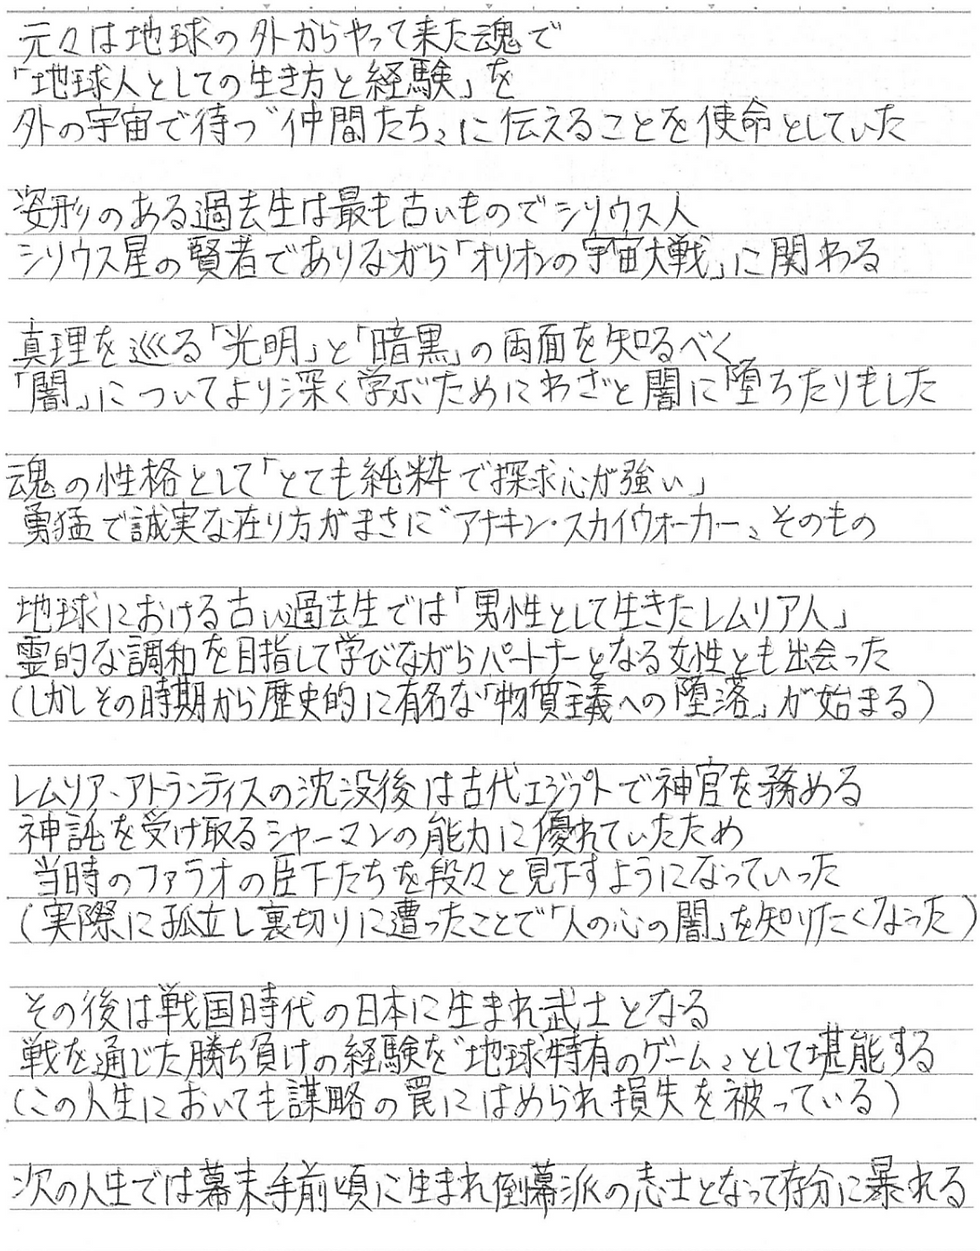 元々は地球の外からやって来た魂で
「地球人としての生き方と経験」を
外の宇宙で待つ〝仲間たち〟に伝えることを使命としていた
姿形のある過去生は最も古いものでシリウス人
シリウス星の賢者でありながら「オリオンの宇宙大戦」に関わる
真理を巡る「光明」と「暗黒」の両面を知るべく
「闇」についてより深く学ぶためにわざと闇に堕ちたりもした
魂の性格として「とても純粋で探求心が強い」
勇猛で誠実な在り方がまさに〝アナキン・スカイウォーカー〟そのもの
地球における古い過去生では「男性として生きたレムリア人」
霊的な調和を目指して学びながらパートナーとなる女性とも出会った
(しかしその時期から歴史的に有名な「物質主義への堕落」が始まる)
レムリア、アトランティスの沈没後は古代エジプトで神官を務める
神託を受け取るシャーマンの能力に優れていたため
当時のファラオの臣下たちを段々と見下すようになっていった
(実際に孤立し裏切りに遭ったことで「人の心の闇」を知りたくなった)
その後は戦国時代の日本に生まれ武士となる
戦を通じた勝ち負けの経験を〝地球特有のゲーム〟として堪能する
(この人生においても謀略の罠にはめられ損失を被っている)
次の人生では幕末手前頃に生まれ倒幕派の志士となって存分に暴れる